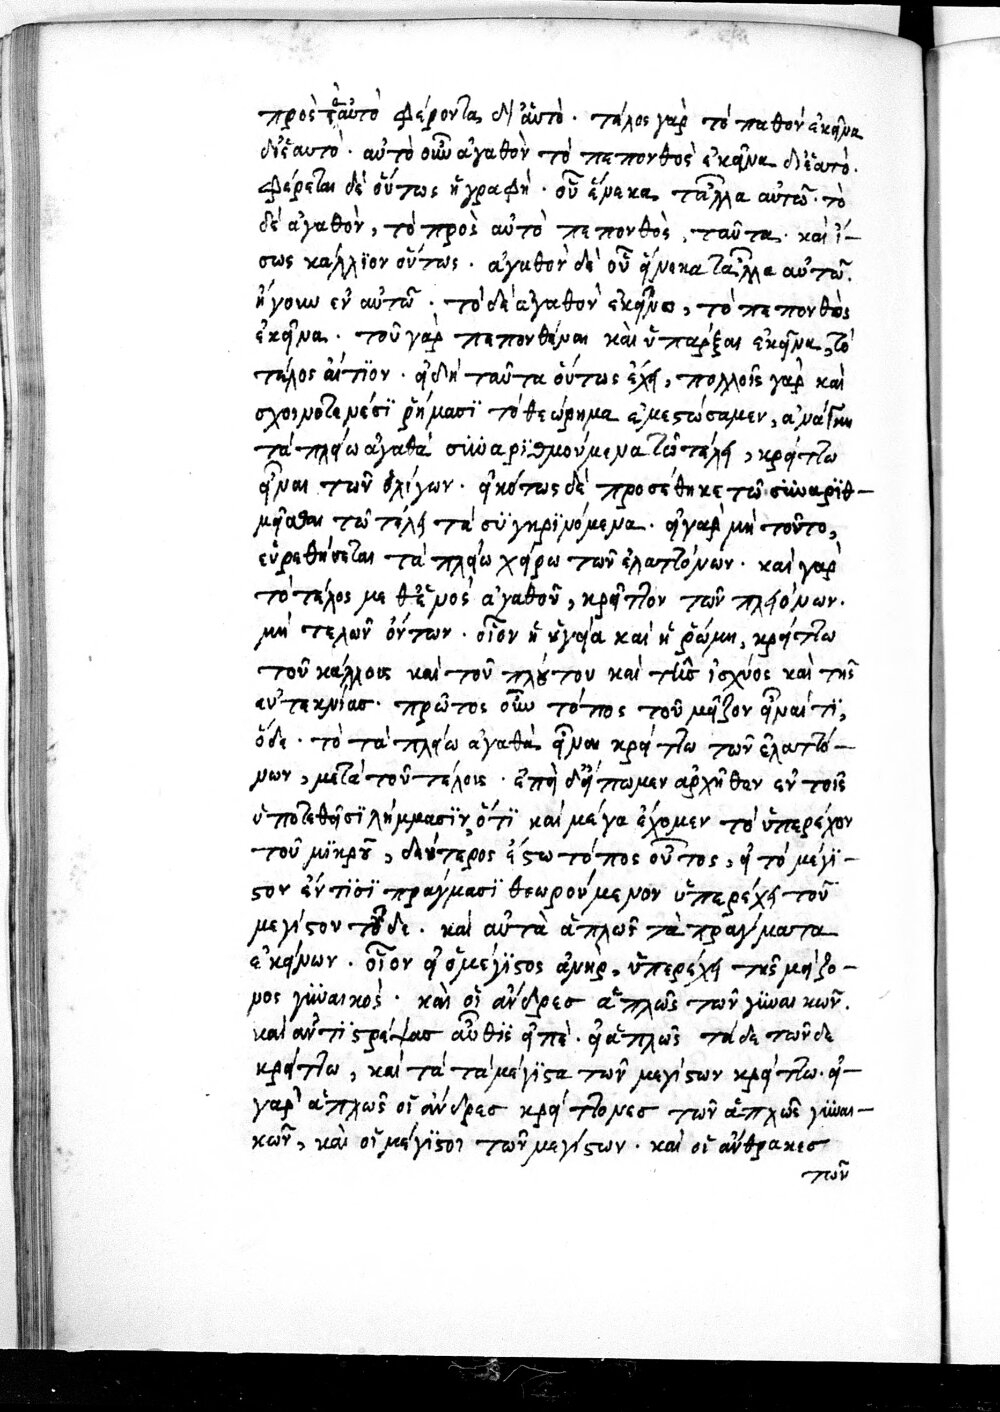 πρὸς ἑαυτὸ φέροντα δι' αὐτό · τέλος γὰρ τὸ παθὸν ἐκεῖνα
δι' ἑαυτό · αὐτὸ οὖν ἀγαθὸν τὸ πεπονθὸς ἐκεῖνα δι' ἑαυτό ·
φέρεται δὲ οὕτως ἡ γραφή · οὗ ἕνεκα τἆλλα αὐτῶ · τὸ
δὲ ἀγαθὸν, τὸ πρὸς αὐτὸ πεπονθὸς, ταῦτα · καὶ ἴ-
σως κάλλϊον οὕτως · ἀγαθὸν δὲ οὗ ἕνεκα τἆλλα αὐτῶ ·
ἤγουν ἐν αὐτῶ · τὸ δὲ ἀγαθὸν ἐκείνω, τὸ πεπονθὸς
ἐκεῖνα · τοῦ γὰρ πεπονθέναι καὶ ὑπάρξαι ἐκεῖνα, τὸ
τέλος αἴτϊον · ἐπειδὴ ταῦτα οὕτως ἔχει, πολλοῖς γὰρ καὶ
σχοινοτενέσϊ ῥήμασϊ τὸ θεώρημα ἐμεστώσαμεν, ἀνάγκη
τὰ πλείω ἀγαθὰ συναρϊθμούμενα τῶ τέλει, κρείττω
εἶναι τῶν ὀλίγων · εἰκότως δὲ προσέθηκε τῶ συναρϊθ-
μεῖσθαι τῶ τέλει τὰ συϊγκρϊνόμενα · εἰ γὰρ μὴ τοῦτο,
εὑρεθήσεται τὰ πλείω χείρω τῶν ἐλαττόνων · καὶ γὰρ
τὸ τέλος μεθ' ἑνὸς ἀγαθοῦ, κρεῖττον τῶν πλειόνων ·
μὴ τελῶν ὄντων · οἷον ἡ ὑγεία καὶ ἡ ῥώμη, κρείττω
τοῦ κάλλους καὶ τοῦ πλούτου καὶ τῆς ἰσχύος καὶ τῆς
εὐτεκνίας · πρῶτος οὖν τόπος τοῦ μεῖζον εἶναί τϊ,
ὅδε · τὸ τὰ πλείω ἀγαθὰ εἶναι κρείττω τῶν ἐλαττό-
νων, μετὰ τοῦ τέλους · ἐπεὶ δ' εἴπωμεν ἀρχῆθεν ἐν τοῖς
ὑποτεθεῖσϊ λήμμασϊν, ὅτϊ καὶ μέγα ἔχομεν τὸ ὑπερέχον
τοῦ μϊκροῦ, δεύτερος ἔστω τόπος οὗτος, εἰ τὸ μέγϊ-
στον ἔν τϊσϊ πράγμασϊ θεωρούμενον ὑπερέχει τοῦ
μεγίστου τοῦδε · καὶ αὐτὰ ἁπλῶς τὰ πράγματα
ἐκείνων · οἷον εἰ ὁ μέγϊστος ἀνὴρ, ὑπερέχει τῆς μείζο-
νος γυναικός · καὶ οἱ ἄνδρες ἁπλῶς τῶν γυναικῶν ·
καὶ ἀντϊστρέψας αὖθϊς εἰπέ · εἰ ἁπλῶς τάδε τῶνδε
κρείττω, καὶ τὰ τὰ μέγϊστα τῶν μεγίστων κρείττω · εἰ
γὰρ ἁπλῶς οἱ ἄνδρες κρείττονες τῶν ἁπλῶς γυναι-
κῶν, καὶ οἱ μέγϊστοι τῶν μεγίστων · καὶ οἱ ἄνθρακες
τῶν